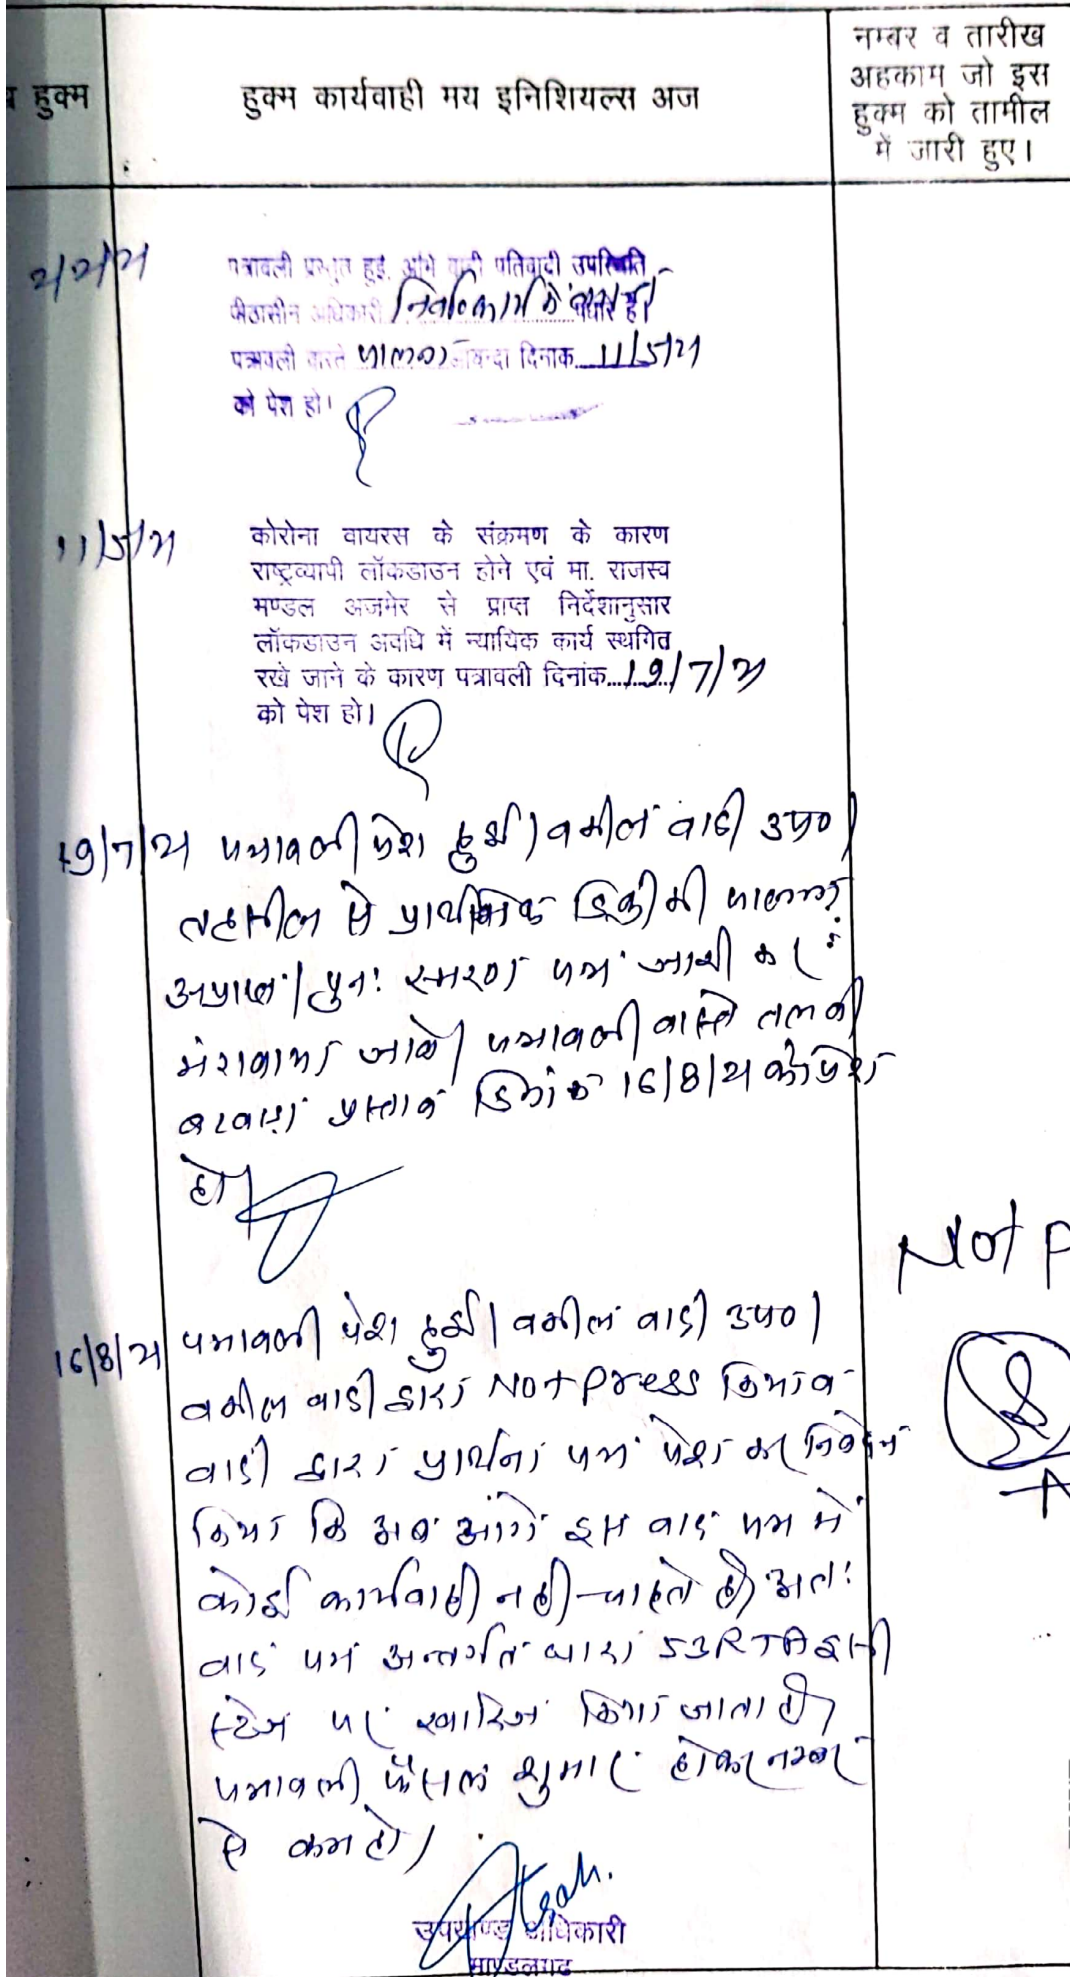 हुक्म
हुक्म कार्यवाही मय इनिशियल्स अज
नम्बर व तारीख
अहकाम जो इस
हुक्म को तामील
में जारी हुए।
पत्रावली प्रस्तुत हुई, वादी प्रतिवादी उपस्थिति
पीठासीन अधिकारी में पधारे है।
पत्रावली वास्ते पालना आयन्दा दिनांक 11/5/21
को पेश हो।
11/5/21
कोरोना वायरस के संक्रमण के कारण
राष्ट्रव्यापी लॉकडाउन होने एवं मा. राजस्व
मण्डल अजमेर से प्राप्त निर्देशानुसार
लॉकडाउन अवधि में न्यायिक कार्य स्थगित
रखे जाने के कारण पत्रावली दिनांक...19/7/21
को पेश हो।
19/7/21 पत्रावली पेश हुई। वकील वादी उप०।
तहसील से प्राथमिक डिक्री की पालना
अप्राप्त। पुनः स्मरण पत्र जारी कर
मंगवाया जावे। पत्रावली वास्ते तलबी
बटवारा प्रस्ताव दिनांक 16/8/21 को पेश
हो।
Not P
16/8/21 पत्रावली पेश हुई। वकील वादी उप०।
वकील वादी द्वारा Not Press किया व
वादी द्वारा प्रार्थना पत्र पेश कर निवेदन
किया कि अब आगे इस वाद पत्र में
कोई कार्यवाही नही चाहते है। अतः
वाद पत्र अन्तर्गत धारा 53 RTA इसी
स्टेज पर खारिज किया जाता है।
पत्रावली फैसल शुमार होकर नम्बर
से कम हो।
उपखण्ड अधिकारी
माण्डलगढ